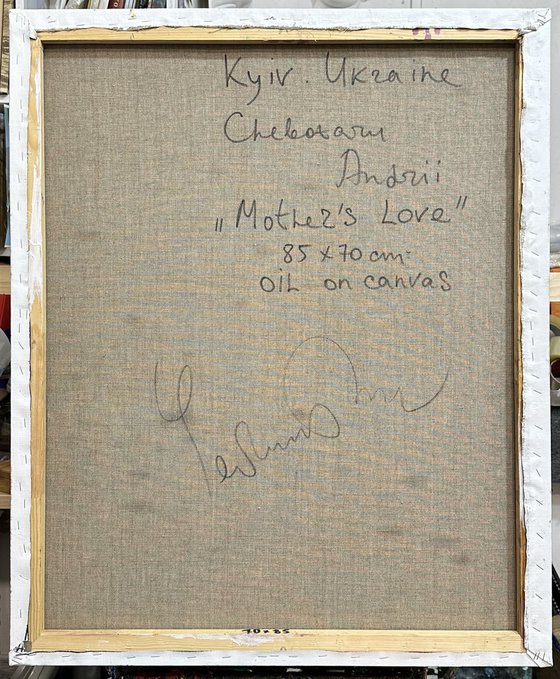 Kyiv. Ukraine
Chebotaru
Andrii
„Mother's Love"
85 x 70 cm
oil on canvas
70×85